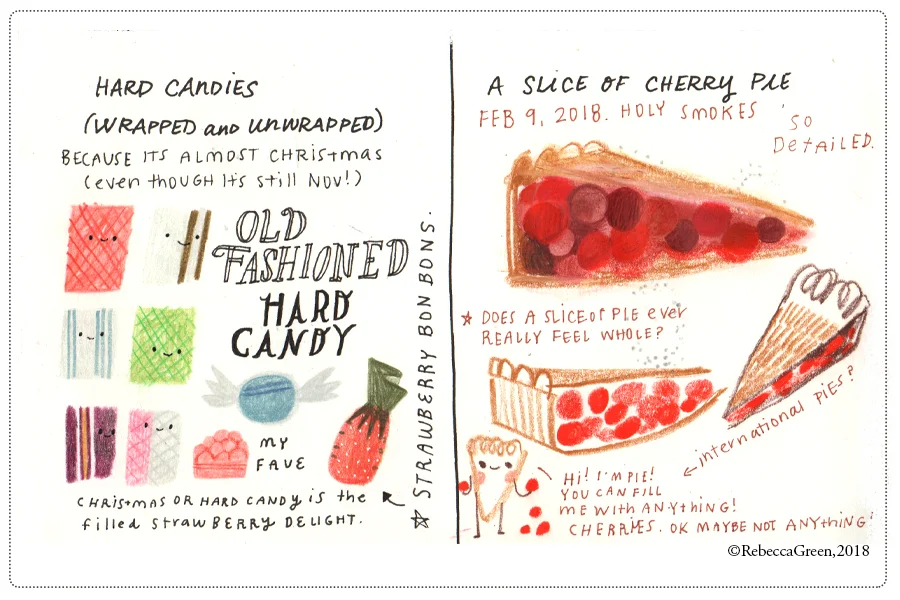 HARD CANDIES
(WRAPPED and UNWRAPPED)
BECAUSE ITS ALMOST CHRISTMAS
(even though It's still NOV!)
OLD
FASHIONED
HARD
CANDY
MY
FAVE
CHRISTMAS OR HARD CANDY is the
filled STRAWBERRY DELIGHT.
☆ STRAWBERRY BON BONS.
A SLICE OF CHERRY PIE
FEB 9, 2018. HOLY SMOKES
SO
DETAILED.
★ DOES A SLICE OF PIE ever
REALLY FEEL WHOLE?
international PIES?
Hi! I'M PIE!
YOU CAN FILL
me WITH ANYthing!
CHERRIES. OK MAYBE NOT ANYthing!
©RebeccaGreen,2018